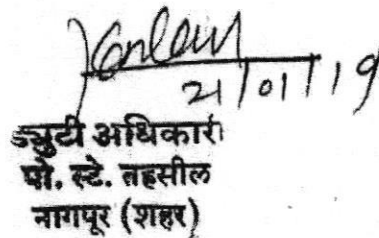 21/01/19
ड्युटी अधिकारी
पो. स्टे. तहसील
नागपूर (शहर)